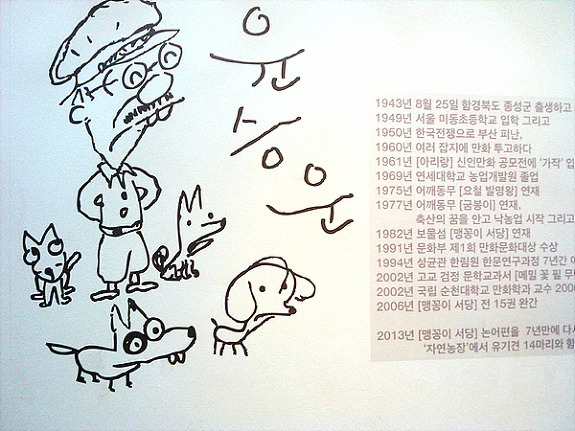 윤
승
운
1943년 8월 25일 함경북도 종성군 출생하고
1949년 서울 미동초등학교 입학 그리고
1950년 한국전쟁으로 부산 피난,
1960년 여러 잡지에 만화 투고하다
1961년 [아리랑] 신인만화 공모전에 '가작' 입
1969년 연세대학교 농업개발원 졸업
1975년 어깨동무 [요철 발명왕] 연재
1977년 어깨동무 [굼봉이] 연재,
축산의 꿈을 안고 낙농업 시작 그리고
1982년 보물섬 [맹꽁이 서당] 연재
1991년 문화부 제1회 만화문화대상 수상
1994년 성균관 한림원 한문연구과정 7년간
2002년 고교 검정 문학교과서 [메밀 꽃 필 무
2002년 국립 순천대학교 만화학과 교수 200
2006년 [맹꽁이 서당] 전 15권 완간
2013년 [맹꽁이 서당] 논어편을 7년만에 다시
'자연농장'에서 유기견 14마리와 함